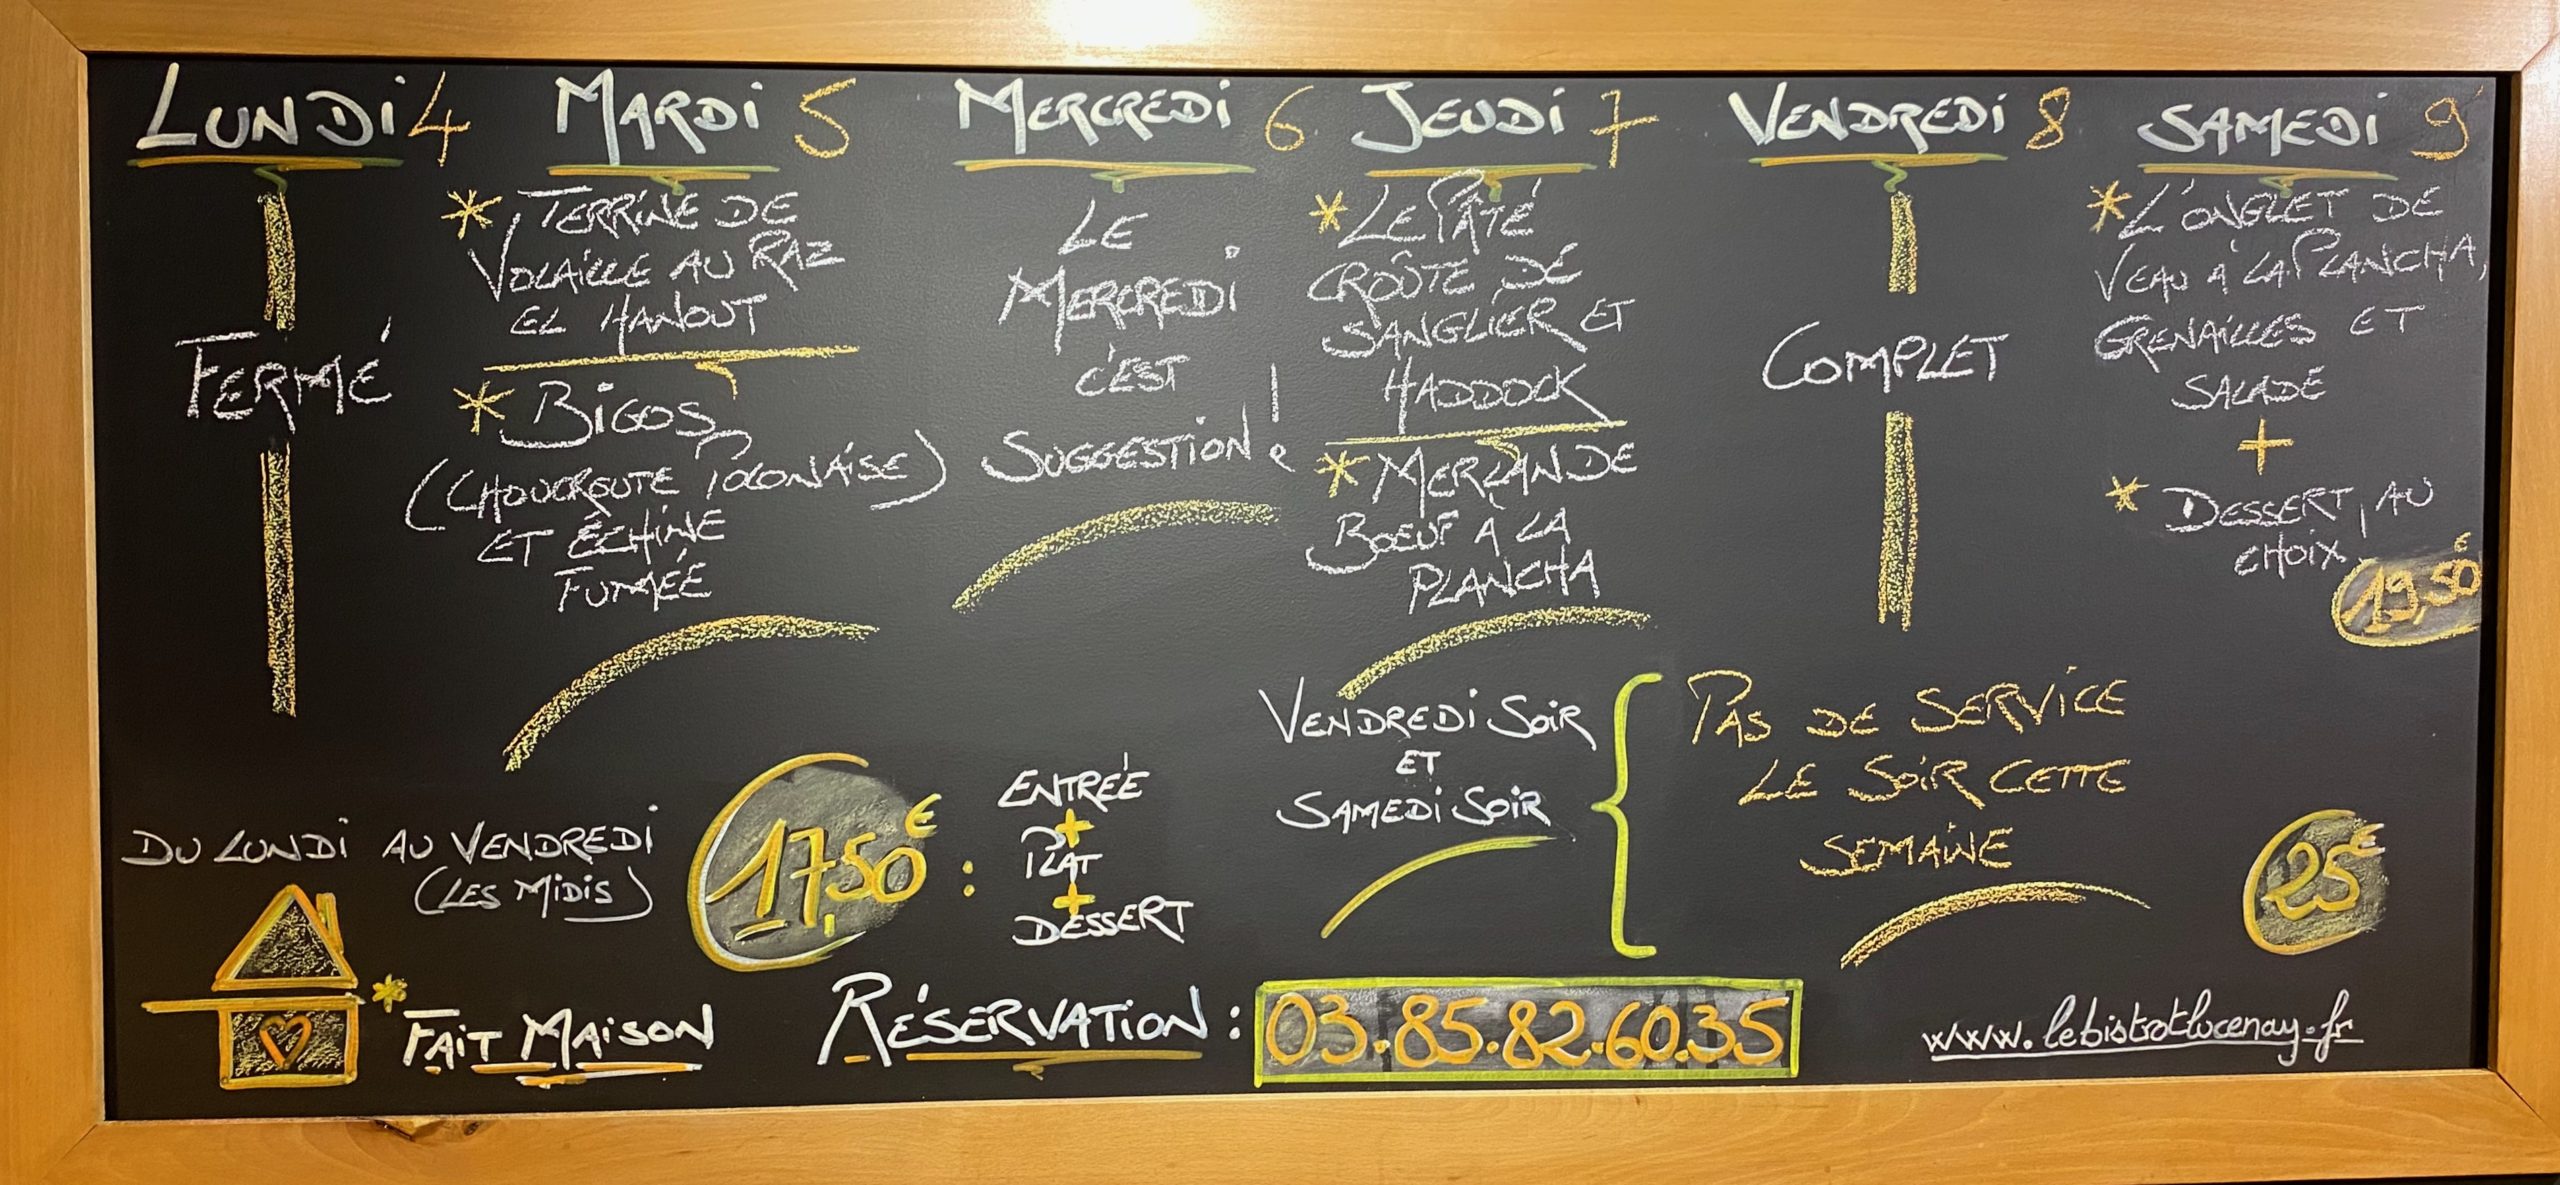 LUNDI 4
FERMÉ
MARDI 5
* TERRINE DE
VOLAILLE AU RAZ
EL HANOUT
* BIGOS
(CHOUCROUTE POLONAISE)
ET ÉCHINE
FUMÉE
MERCREDI 6
LE
MERCREDI
C'EST
SUGGESTION !
JEUDI 7
* LE PÂTÉ
CROÛTE DE
SANGLIER ET
HADDOCK
* MERLAN DE
BOEUF À LA
PLANCHA
VENDREDI 8
COMPLET
SAMEDI 9
* L'ONGLET DE
VEAU À LA PLANCHA,
GRENAILLES ET
SALADE
+
* DESSERT, AU
CHOIX
19,50€
DU LUNDI AU VENDREDI
(LES MIDIS)
17,50€ :
ENTRÉE
+
PLAT
+
DESSERT
VENDREDI SOIR
ET
SAMEDI SOIR
PAS DE SERVICE
LE SOIR CETTE
SEMAINE
25€
* FAIT MAISON
RÉSERVATION : 03.85.82.60.35
www.lebistrotlucenay.fr